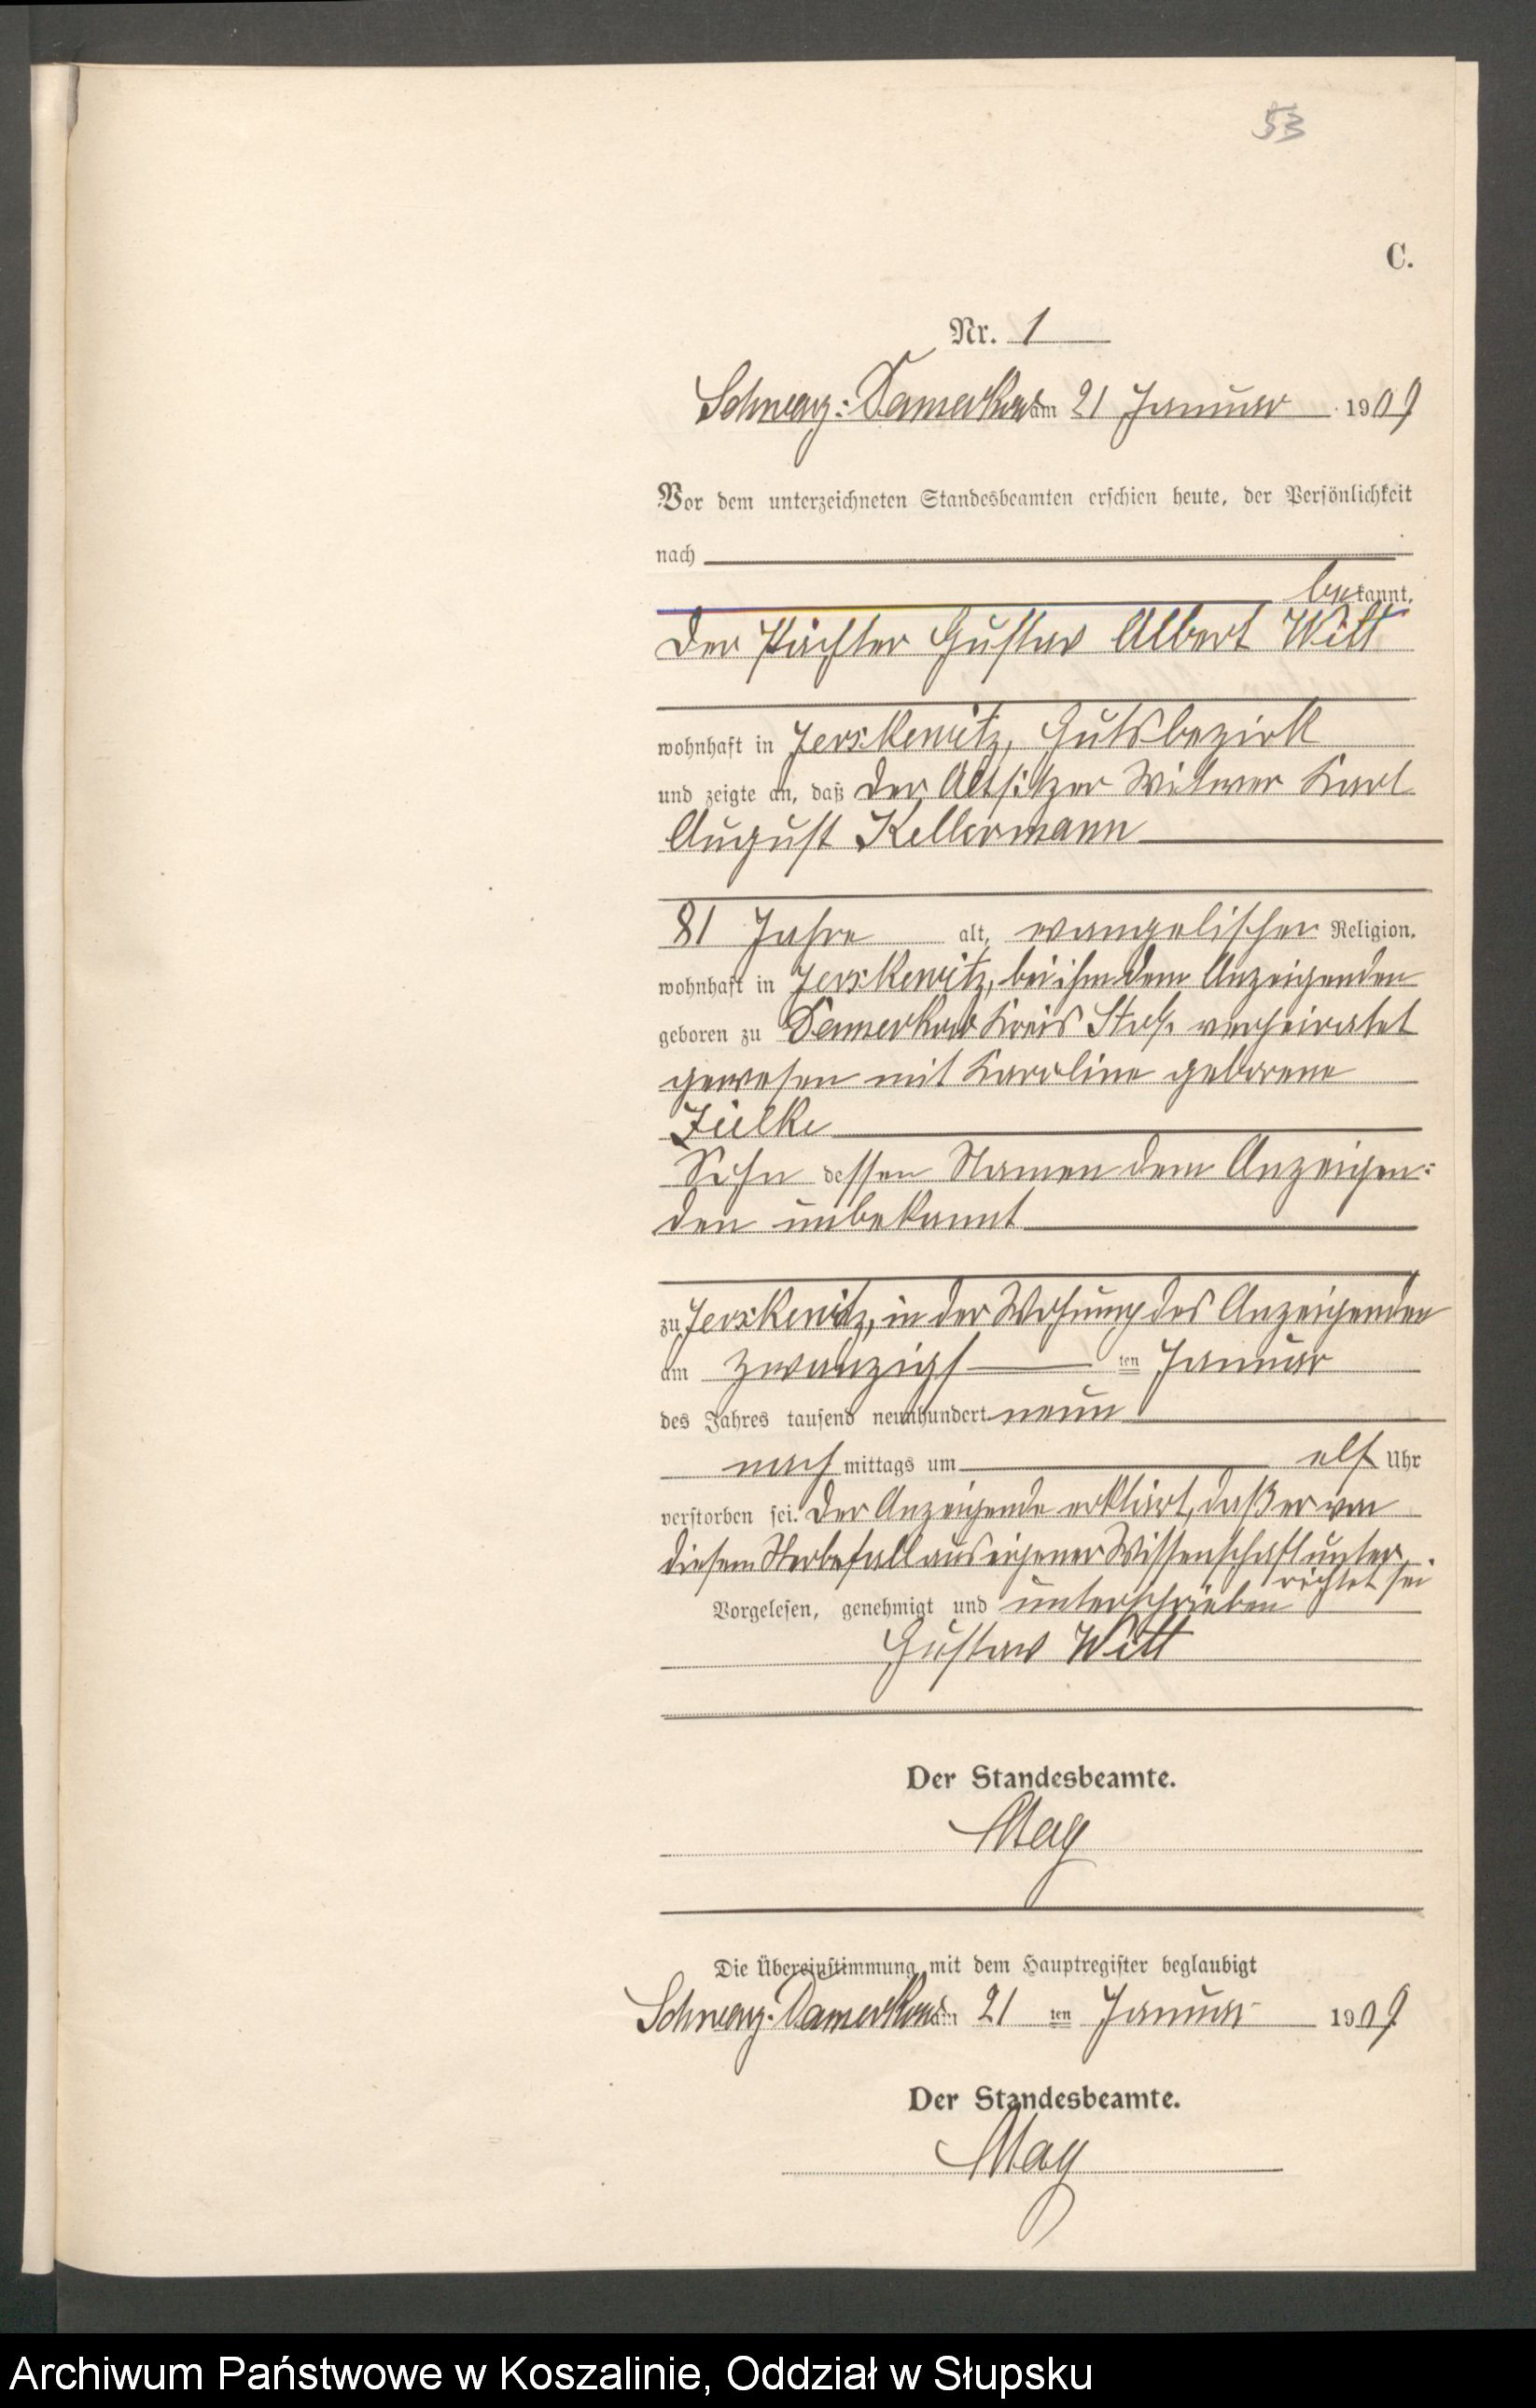 53
C.
Nr. 1
Schwarz-Damerkow am 21 Januar 1909
Vor dem unterzeichneten Standesbeamten erschien heute, der Persönlichkeit
nach
bekannt,
der Pächter Gustav Albert Witt
wohnhaft in Jerskewitz, Gutsbezirk
und zeigte an, daß der Altsitzer Witwer Karl
August Kellermann
81 Jahre alt, evangelischer Religion,
wohnhaft in Jerskewitz, bei ihm dem Anzeigenden
geboren zu Damerkow Kreis Stolp verheiratet
gewesen mit Karoline geborene
Zielke
Sohn dessen Namen dem Anzeigen-
den unbekannt
zu Jerskewitz, in der Wohnung des Anzeigenden
am zwanzigsten Januar
des Jahres tausend neunhundert neun
nachmittags um elf Uhr
verstorben sei. Der Anzeigende erklärt, daß er von
diesem Sterbefall aus eigener Wissenschaft unter-
richtet sei
Vorgelesen, genehmigt und unterschrieben
Gustav Witt
Der Standesbeamte.
May
Die Übereinstimmung mit dem Hauptregister beglaubigt
Schwarz-Damerkow am 21 ten Januar 1909
Der Standesbeamte.
May
Archiwum Państwowe w Koszalinie, Oddział w Słupsku